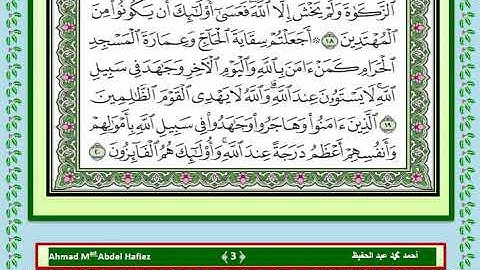 ٱلزَّكَوٰةَ وَلَمْ يَخْشَ إِلَّا ٱللَّهَ فَعَسَىٰٓ أُو۟لَٰٓئِكَ أَن يَكُونُوا۟ مِنَ
ٱلْمُهْتَدِينَ ١٨ ۞ أَجَعَلْتُمْ سِقَايَةَ ٱلْحَآجِّ وَعِمَارَةَ ٱلْمَسْجِدِ
ٱلْحَرَامِ كَمَنْ ءَامَنَ بِٱللَّهِ وَٱلْيَوْمِ ٱلْءَاخِرِ وَجَٰهَدَ فِى سَبِيلِ
ٱللَّهِ لَا يَسْتَوُۥنَ عِندَ ٱللَّهِ وَٱللَّهُ لَا يَهْدِى ٱلْقَوْمَ ٱلظَّٰلِمِينَ
١٩ ٱلَّذِينَ ءَامَنُوا۟ وَهَاجَرُوا۟ وَجَٰهَدُوا۟ فِى سَبِيلِ ٱللَّهِ بِأَمْوَٰلِهِمْ
وَأَنفُسِهِمْ أَعْظَمُ دَرَجَةً عِندَ ٱللَّهِ وَأُو۟لَٰٓئِكَ هُمُ ٱلْفَآئِزُونَ ٢٠
Ahmad Mᵐᵈ Abdel Hafiez ﴿3﴾ أحمد محمد عبد الحفيظ